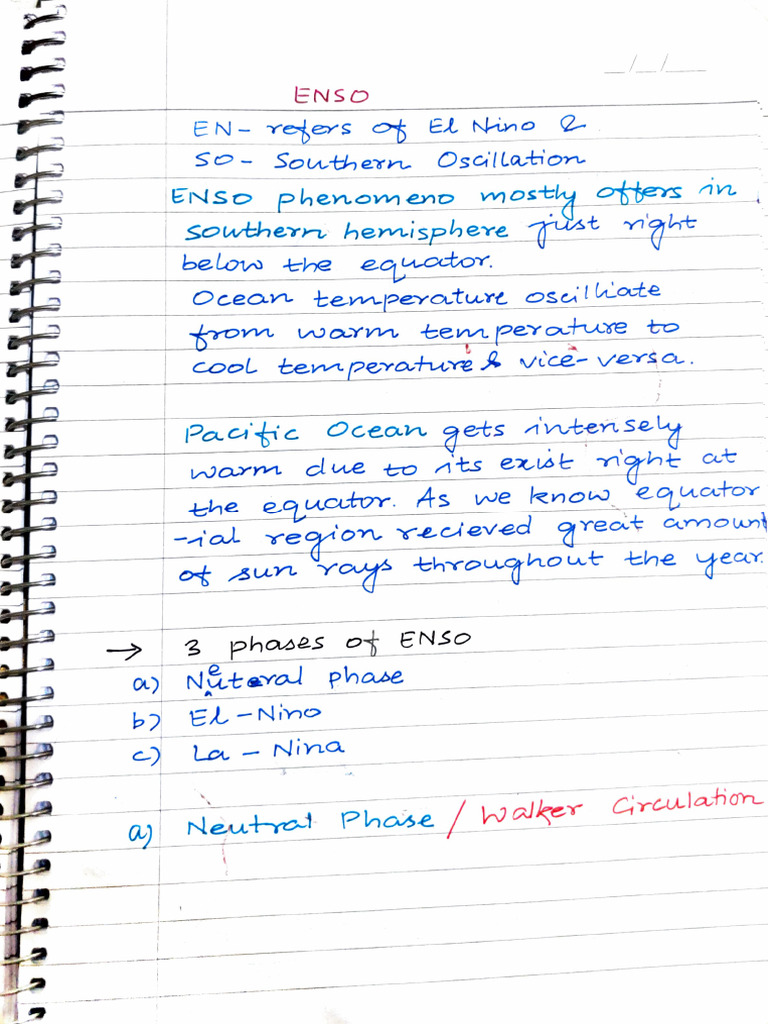 ENSO
EN- refers of El Nino &
SO - Southern Oscillation
ENSO phenomeno mostly offers in
southern hemisphere just right
below the equator.
Ocean temperature oscilliate
from warm temperature to
cool temperature & vice-versa.
Pacific Ocean gets intensely
warm due to its exist right at
the equator. As we know equator
-ial region recieved great amount
of sun rays throughout the year.
→ 3 phases of ENSO
a) Neuteral phase
b) El-Nino
c) La-Nina
a) Neutral Phase / Walker Circulation